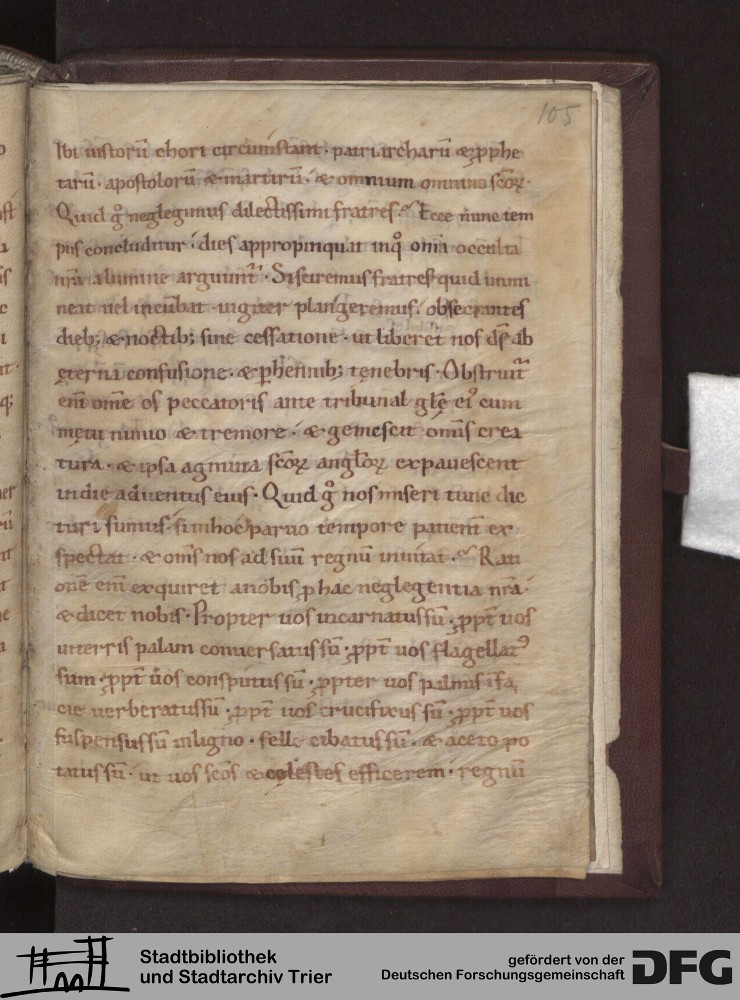 105
Ibi iustorū chori circūstant· patriarcharū & ꝓphe
tarū· apostolorū & martirū· & omnium omnino scōꝝ·
Quid gͦ neglegimus dilectissimi fratres? Ecce nunc tem
pus concluditur· dies appropinquat inqͦ om̄ia occulta
nr̄a a lumine arguunt᷑· Si sciremus fratres quid immi
neat uel incūbat· iugiter plangeremus· obsecrantes
dieb; & noctib; sine cessatione· ut liberet nos ds̄ ab
ęterna confusione· & phennib; tenebris· Obstruit᷑
eni͞ om̄e os peccatoris ante tribunal glę̄ eiꝰ cum
metu nimio & tremore· & gemescit om̄is crea
tura· & ipsa agmina scōꝝ angl̄oꝝ expauescent
in die aduentus eius· Quid gͦ nos miseri tunc dic
turi sumus· si in hoc paruo tempore patient̄ ex
spectat· & om̄s nos ad suū regnū inuitat? Rati
onē eni͞ exquiret a nobis ꝓ hac neglegentia nr̄a·
& dicet nobis· Propter uos incarnatus sū· ꝓpt̄ uos
in terris palam conuersatus sū· ꝓpt̄ uos flagellatꝰ
sum· ꝓpt̄ uos conspūtus sū· ꝓpter uos palmis ī fa
cie uerberatus sū· ꝓpt̄ uos crucifixus sū· ꝓpt̄ uos
suspensus sū in ligno· felle cibatus sū· & aceto po
tatus sū· ut uos scōs & cęlestes efficerem· regnū
Stadtbibliothek
und Stadtarchiv Trier
gefördert von der
Deutschen Forschungsgemeinschaft
DFG